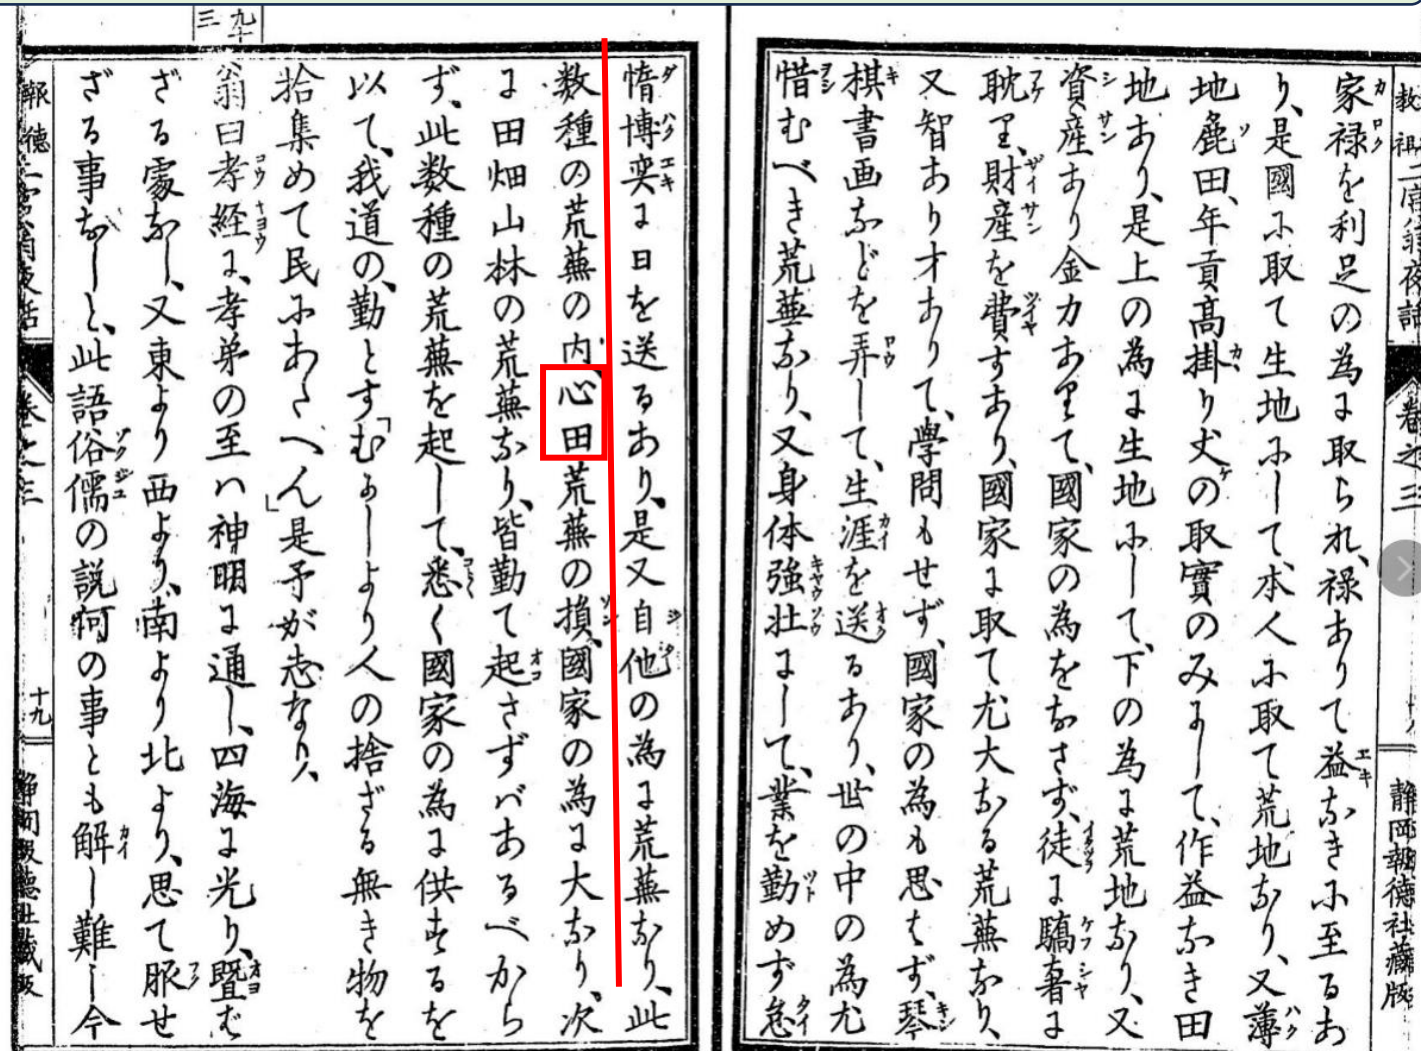 教祖二宮翁夜話 巻之三 静岡報徳社蔵版
家禄を利足の為に取られ、禄ありて益なきに至るあ
り、是國に取て生地にして、本人に取て荒地なり、又薄
地麁田、年貢高掛り丈の取實のみにして、作益なき田
地あり、是上の為に生地にして、下の為に荒地なり、又
資産あり金力ありて、國家の為をなさず、徒に驕奢に
耽り、財産を費すあり、國家に取て尤大なる荒蕪なり、
又智あり才ありて、學問もせず、國家の為も思はず、琴
棋書画などを弄して、生涯を送るあり、世の中の為尤
惜むべき荒蕪なり、又身体強壮にして、業を勤めず怠
惰博奕に日を送るあり、是又自他の為に荒蕪なり、此
数種の荒蕪の内、心田荒蕪の損、國家の為に大なり、次
に田畑山林の荒蕪なり、皆勤て起さずバあるべから
ず、此数種の荒蕪を起して、悉く國家の為に供するを
以て、我道の、勤とす「むかしより人の捨ざる無き物を
拾集めて民にあたへん」是予が志なり、
九十三
翁曰孝経に、孝弟の至ハ神明に通し、四海に光り、曁ば
ざる處なし、又東より西より、南より北より、思て服せ
ざる事なしと、此語俗儒の説何の事とも解し難し今
報徳 二宮翁夜話 巻之三 十九 静岡報徳社蔵版